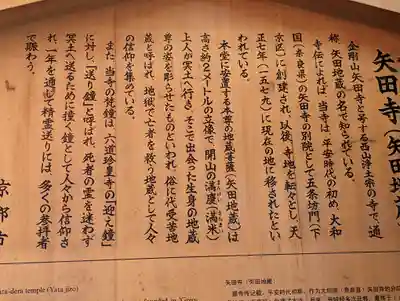 矢田寺(矢田地蔵
金剛山矢田寺と号する西山浄土宗の寺で、通
称、矢田地蔵の名で知られている。
寺伝によれば、当寺は、平安時代の初め、大和
国(奈良県)の矢田寺の別院として五条坊門(下
京区)に創建され、以後、寺地を転々とし、天
正七年(一五七九)に現在の地に移されたとい
われている。
本堂に安置する本尊の地蔵菩薩(矢田地蔵)は
高さ約2メートルの立像で、開山の満慶(満米)
上人が冥土へ行き、そこで出会った生身の地蔵
尊の姿を彫らせたものといわれ、俗に代受苦地
蔵と呼ばれ、地獄で亡者を救う地蔵として人々
の信仰を集めている。
また、当寺の梵鐘は、六道珍皇寺の「迎え鐘」
に対し、「送り鐘」と呼ばれ、死者の霊を迷わず
冥土へ送るために撞く鐘として人々から信仰さ
れ、一年を通して精霊送りには、多くの参拝者
で賑わう。
京都市
ta-dera temple (Yata jizo)
矢田寺(矢田地藏)